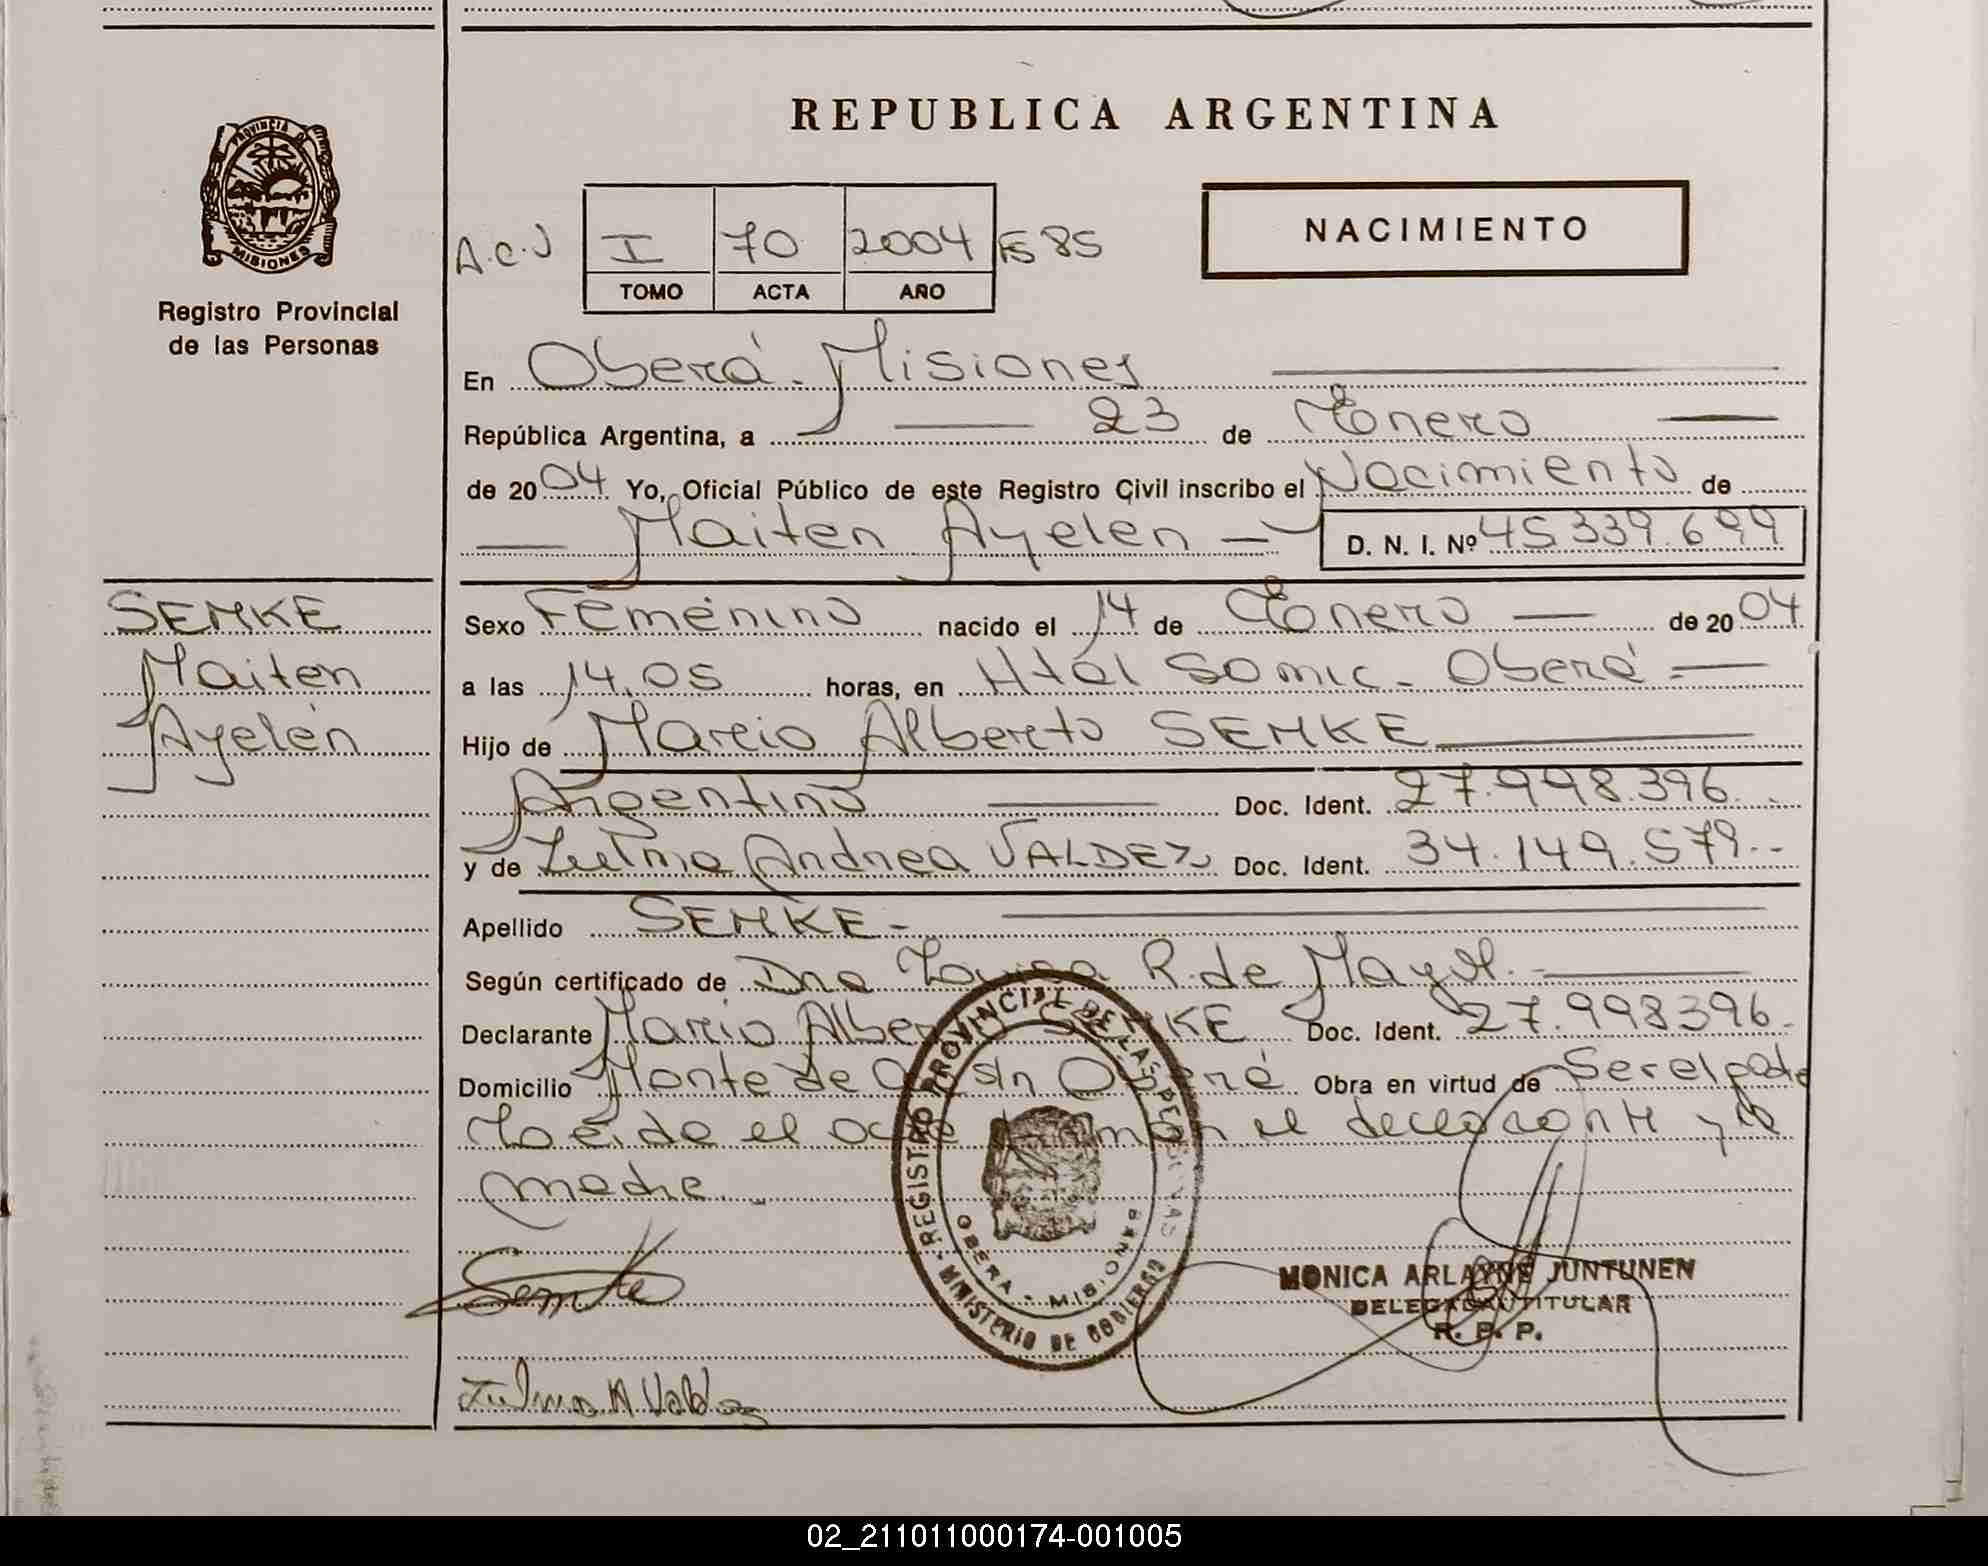 REPUBLICA ARGENTINA
PROVINCIA DE
MISIONES
Registro Provincial
de las Personas
A.C.J I 70 2004 Fs 85
TOMO ACTA AÑO
NACIMIENTO
En Oberá. Misiones
República Argentina, a 23 de Enero
de 2004 Yo, Oficial Público de este Registro Civil inscribo el Nacimiento de
Maiten Ayelen D. N. I. Nº 45 339.699
SEMKE
Maiten
Ayelén
Sexo Femenino nacido el 14 de Enero de 2004
a las 14.05 horas, en Htal Samic - Oberá
Hijo de Mario Alberto SEMKE
Argentino Doc. Ident. 27.998.396
y de Zulma Andrea VALDEZ Doc. Ident. 34.149.579
Apellido SEMKE
Según certificado de Dra R. de May
Declarante Mario Alberto SEMKE Doc. Ident. 27.998396
Domicilio Monte de s/n Oberá Obra en virtud de Ser el padre
Leída el acta firman el declarante y la
madre.
Semke
REGISTRO PROVINCIAL DE LAS PERSONAS
MINISTERIO DE GOBIERNO
OBERA - MISIONES
MONICA ARLAYNE JUNTUNEN
DELEGADA TITULAR
R. P. P.
Zulma A Valdez
02_211011000174-001005